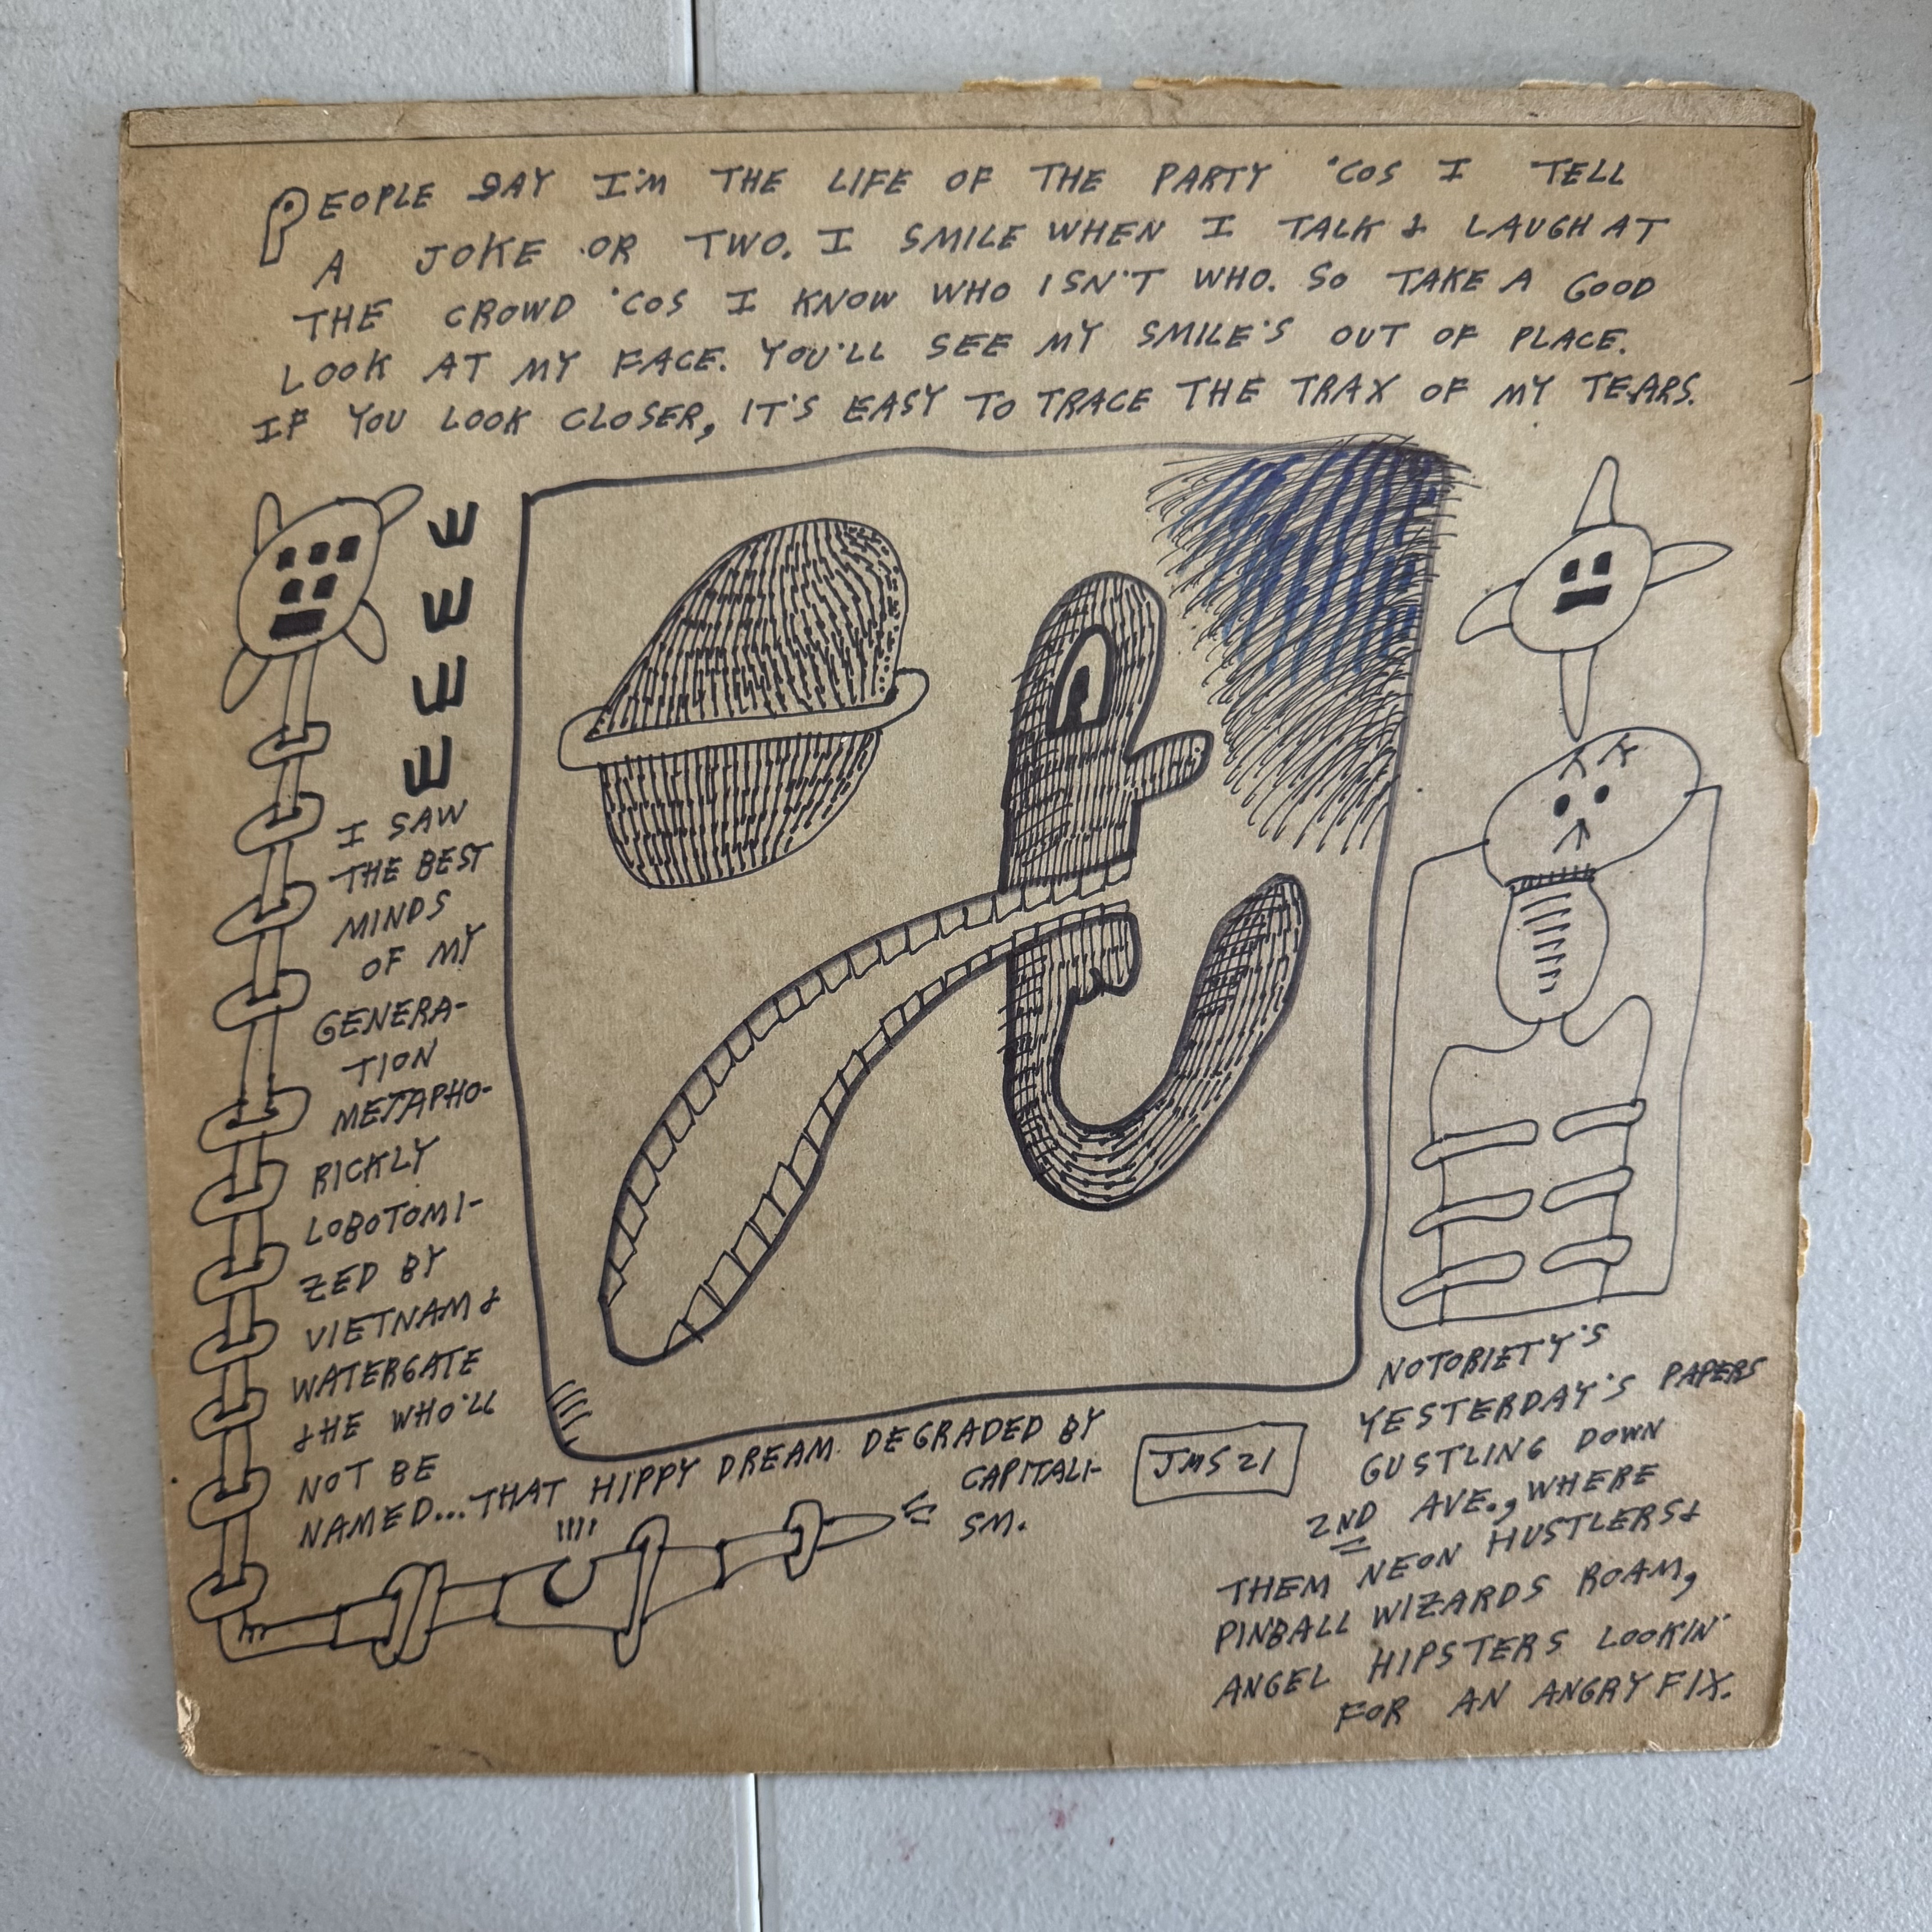 PEOPLE SAY I'M THE LIFE OF THE PARTY 'COS I TELL
A JOKE OR TWO. I SMILE WHEN I TALK & LAUGH AT
THE CROWD 'COS I KNOW WHO ISN'T WHO. SO TAKE A GOOD
LOOK AT MY FACE. YOU'LL SEE MY SMILE'S OUT OF PLACE.
IF YOU LOOK CLOSER, IT'S EASY TO TRACE THE TRAX OF MY TEARS.
I SAW
THE BEST
MINDS
OF MY
GENERA-
TION
METAPHO-
RICKLY
LOBOTOMI-
ZED BY
VIETNAM &
WATERGATE
& HE WHO'LL
NOT BE
NAMED...THAT HIPPY DREAM DEGRADED BY
CAPITALI-
SM.
JMS 21
NOTORIETY'S
YESTERDAY'S PAPERS
GUSTLING DOWN
2ND AVE., WHERE
THEM NEON HUSTLERS &
PINBALL WIZARDS ROAM,
ANGEL HIPSTERS LOOKIN'
FOR AN ANGRY FIX.